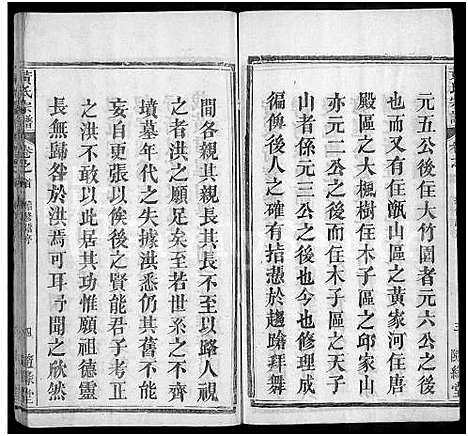 元五公後住大竹園者元六公之後
又有住在甑山區之黃家河住在木子
殿區之大楓樹住木子區之邱家山
亦元二公之後住木子區之天子
山者係元三公之後也修理成
徧僾之後人者有拮懯於趨蹌拜舞
間各親其親長其長若以路人視
之洪之願足矣至若世之不齊
墳墓年代之失據洪其舊不能
妄自更張以俟後之賢能君子考正
之洪之共功惟願祖德靈
長無歸咎於洪焉可耳予聞之欣然
黃氏宗譜
卷之首
續修譜序
四
隨緣堂
三
隨緣堂